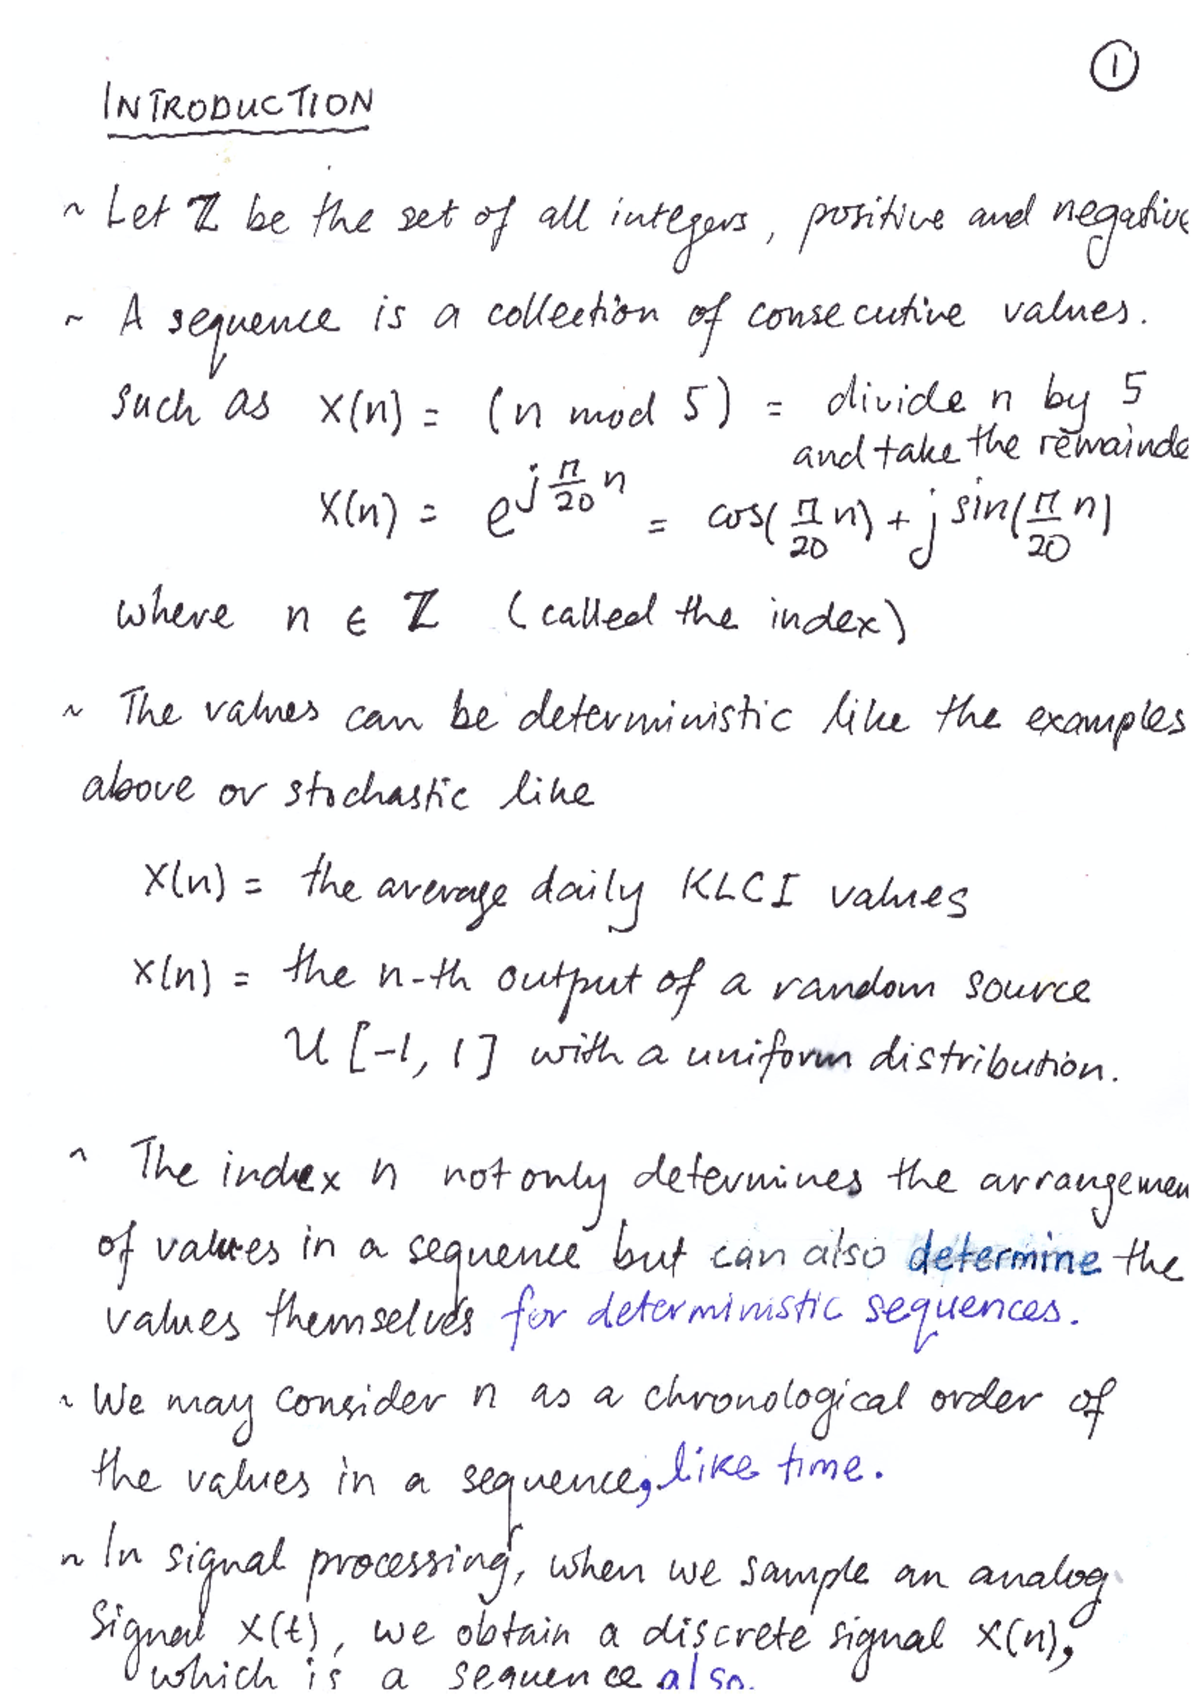 ①
INTRODUCTION
~ Let ℤ be the set of all integers, positive and negative
~ A sequence is a collection of consecutive values.
such as x(n) = (n mod 5) = divide n by 5
and take the remainde
x(n) = e^{j π/20 n} = cos(π/20 n) + j sin(π/20 n)
where n ∈ ℤ (called the index)
~ The values can be deterministic like the examples
above or stochastic like
x(n) = the average daily KLCI values
x(n) = the n-th output of a random source
U [-1, 1] with a uniform distribution.
~ The index n not only determines the arrangemen
of values in a sequence but can also determine the
values themselves for deterministic sequences.
~ We may consider n as a chronological order of
the values in a sequence, like time.
~ In signal processing, when we sample an analog
signal x(t), we obtain a discrete signal x(n),
which is a sequence also.